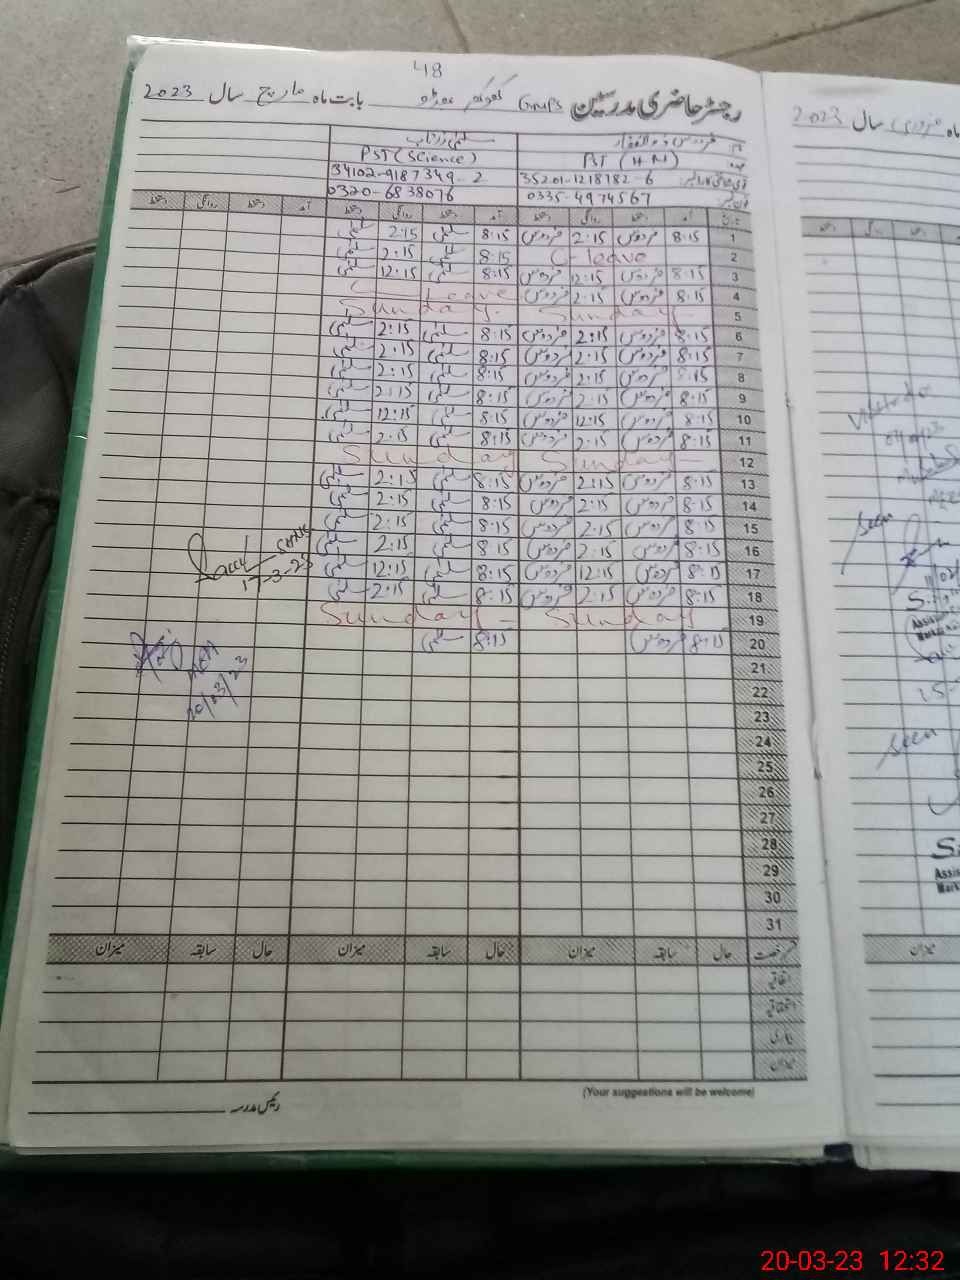 48
رجسٹر حاضری مدرسین GGMPS بابت ماہ مارچ سال 2023
نام فردوس ذوالفقار سلمیٰ
عہدہ PST (H-M) PST (Science)
35201-1218782-6 34102-9187349-2
0335-4974567 0320-6838076
تاریخ آمد دستخط روانگی دستخط آمد دستخط روانگی دستخط آمد دستخط روانگی دستخط
1 8:15 فردوس 2:15 فردوس 8:15 سلمیٰ 2:15 سلمیٰ
2 C-leave 8:15 سلمیٰ 2:15 سلمیٰ
3 8:15 فردوس 12:15 فردوس 8:15 سلمیٰ 12:15 سلمیٰ
4 8:15 فردوس 2:15 فردوس C Leave
5 Sunday Sunday
6 8:15 فردوس 2:15 فردوس 8:15 سلمیٰ 2:15 سلمیٰ
7 8:15 فردوس 2:15 فردوس 8:15 سلمیٰ 2:15 سلمیٰ
8 8:15 فردوس 2:15 فردوس 8:15 سلمیٰ 2:15 سلمیٰ
9 8:15 فردوس 2:15 فردوس 8:15 سلمیٰ 2:15 سلمیٰ
10 8:15 فردوس 12:15 فردوس 8:15 سلمیٰ 12:15 سلمیٰ
11 8:15 فردوس 2:15 فردوس 8:15 سلمیٰ 2:15 سلمیٰ
12 Sunday Sunday
13 8:15 فردوس 2:15 فردوس 8:15 سلمیٰ 2:15 سلمیٰ
14 8:15 فردوس 2:15 فردوس 8:15 سلمیٰ 2:15 سلمیٰ
15 8:15 فردوس 2:15 فردوس 8:15 سلمیٰ 2:15 سلمیٰ
16 8:15 فردوس 2:15 فردوس 8:15 سلمیٰ 2:15 سلمیٰ
17 8:15 فردوس 12:15 فردوس 8:15 سلمیٰ 12:15 سلمیٰ
18 8:15 فردوس 2:15 فردوس 8:15 سلمیٰ 2:15 سلمیٰ
19 Sunday Sunday
20 8:15 فردوس 8:15 سلمیٰ
21
22
23
24
25
26
27
28
29
30
31
17-3-23
20/03/23
رخصت حال سابقہ میزان حال سابقہ میزان حال سابقہ میزان
اتفاقیہ
استحقاقیہ
بیماری
میزان
(Your suggestions will be welcome)
رئیس مدرسہ
ماہ فروری سال 2023
Seen
Seen
میزان
20-03-23 12:32